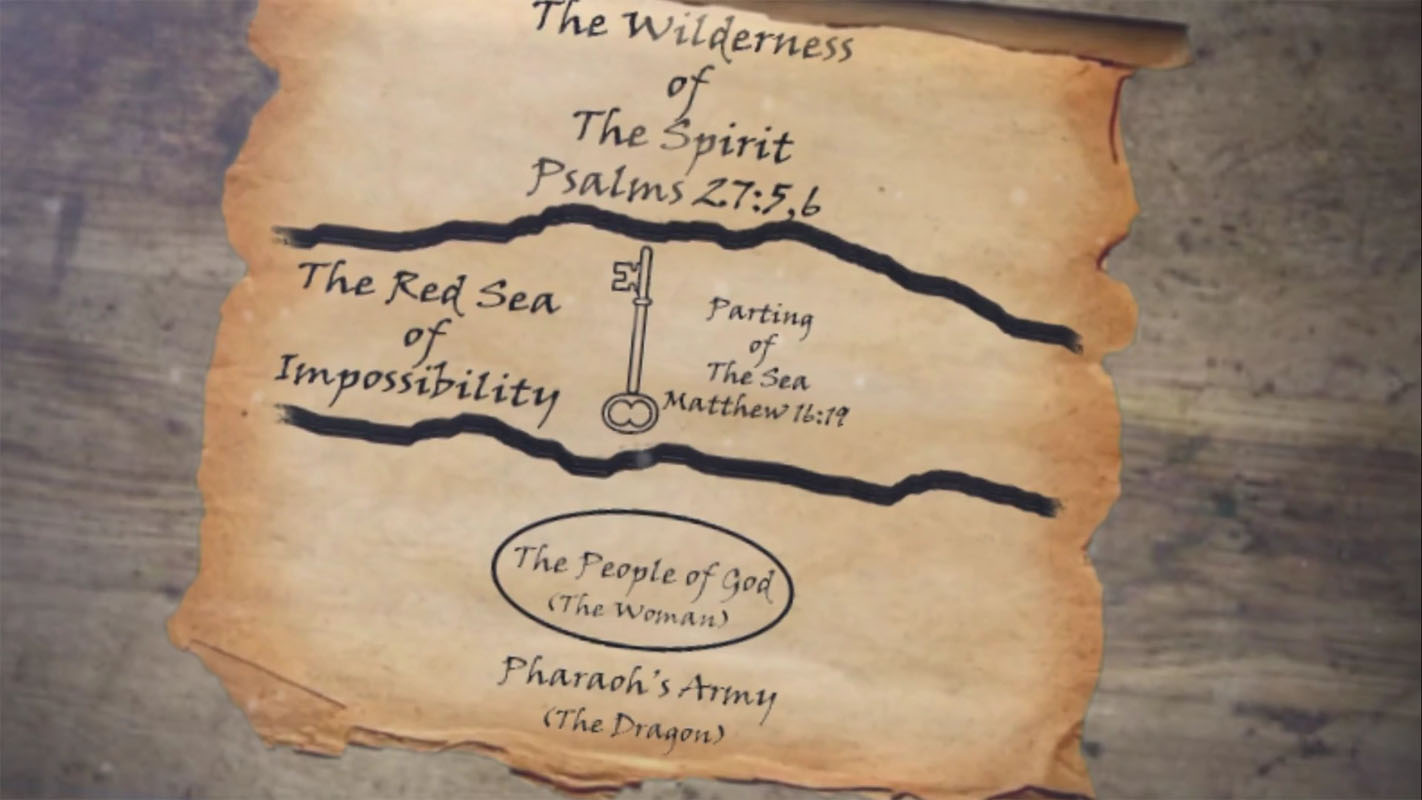 The Wilderness
of
The Spirit
Psalms 27:5,6
The Red Sea
of
Impossibility
Parting
of
The Sea
Matthew 16:19
The People of God
(The Woman)
Pharaoh's Army
(The Dragon)